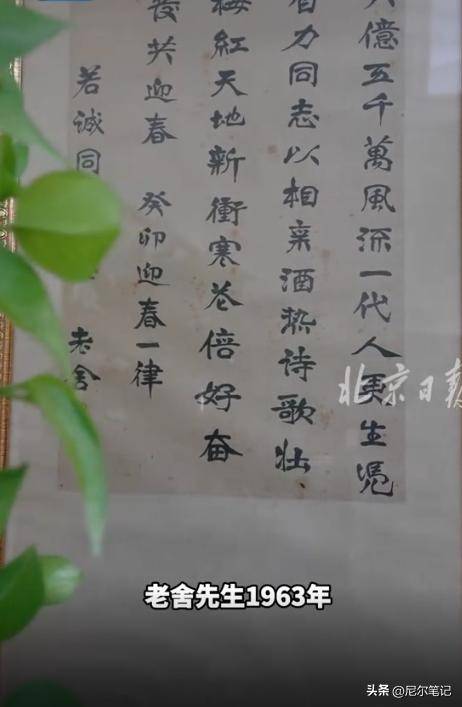 億五千萬風流一代人更生凴
自力同志以相亲酒热詩歌壮
梅紅天地新衝寒花倍好奋
發共迎春 癸卯迎春一律
若诚同 老舍
北京日報
老舍先生1963年
头条 @尼尔笔记